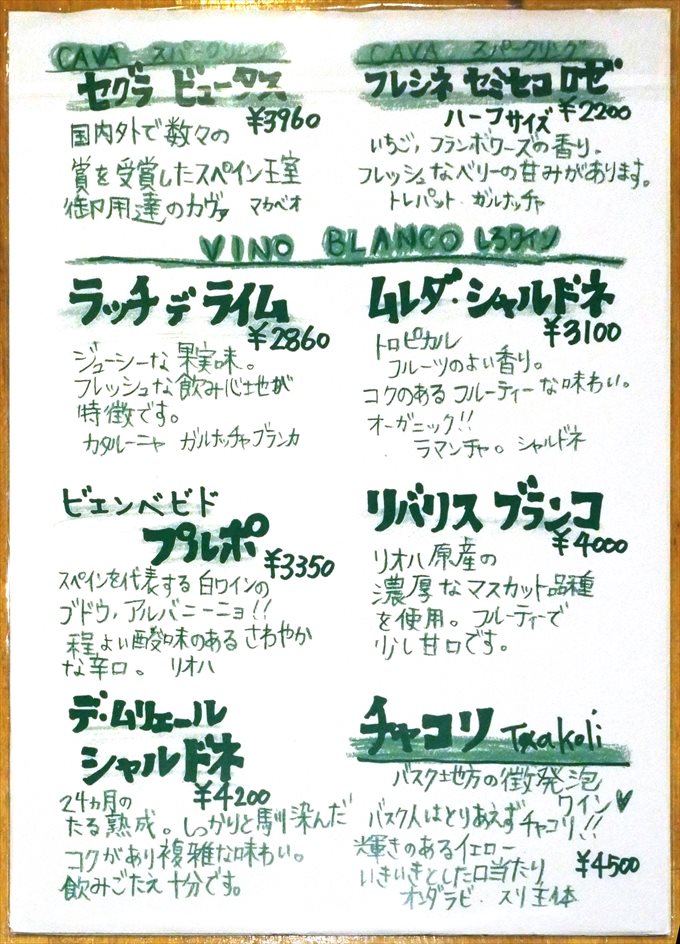 CAVA スパークリング
セグラ ビューダス
¥3960
国内外で数々の
賞を受賞したスペイン王室
御用達のカヴァ マカベオ
CAVA スパークリング
フレシネ セミセコ ロゼ
ハーフサイズ ¥2200
いちご,フランボワーズの香り。
フレッシュなベリーの甘みがあります。
トレパット ガルナッチャ
VINO BLANCO しろワイン
ラッチ デ ライム
¥2860
ジューシーな果実味。
フレッシュな飲み心地が
特徴です。
カタルーニャ ガルナッチャブランカ
ムレダ・シャルドネ
¥3100
トロピカル
フルーツのよい香り。
コクのあるフルーティーな味わい。
オーガニック!!
ラマンチャ。シャルドネ
ビエンベビド
プルポ
¥3350
スペインを代表する白ワインの
ブドウ,アルバニーニョ!!
程よい酸味のあるさわやか
な辛口。 リオハ
リバリス ブランコ
¥4000
リオハ原産の
濃厚なマスカット品種
を使用。フルーティーで
少し甘口です。
デ・ムリェール
シャルドネ
¥4200
24ヵ月の
たる熟成。しっかりと馴染んだ
コクがあり複雑な味わい。
飲みごたえ十分です。
チャコリ Txakoli
バスク地方の微発泡
ワイン♥
バスク人はとりあえずチャコリ!!
輝きのあるイエロー
¥4500
いきいきとした口当たり
オンダラビ・スリ主体